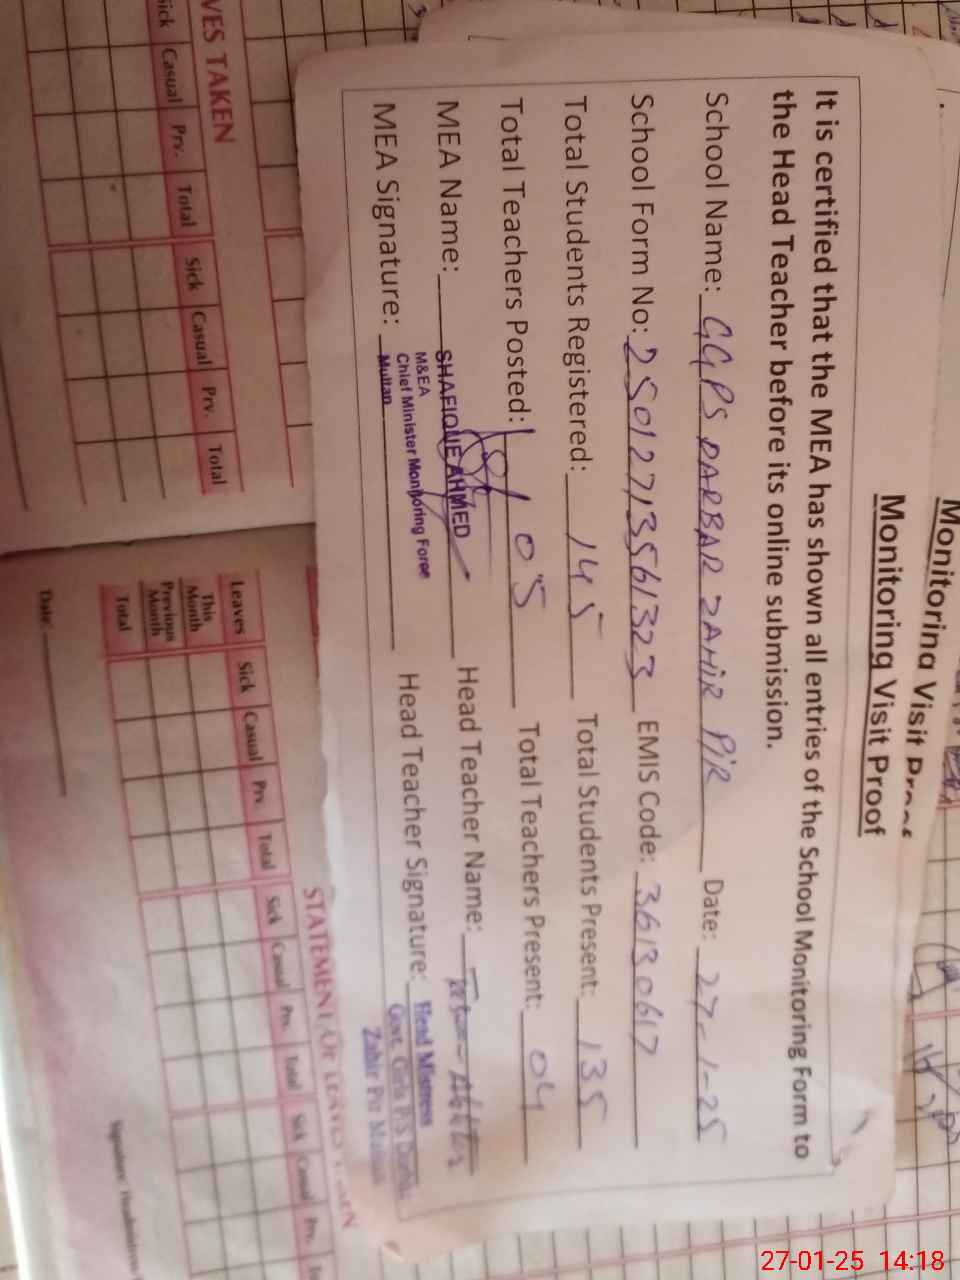 Monitoring Visit Proof
Monitoring Visit Proof
It is certified that the MEA has shown all entries of the School Monitoring Form to
the Head Teacher before its online submission.
School Name: GGPS DARBAR ZAHIR PIR Date: 27-1-25
School Form No: 25012713561323 EMIS Code: 36130617
Total Students Registered: 145 Total Students Present: 135
Total Teachers Posted: 05 Total Teachers Present: 04
MEA Name: SHAFIQUE AHMED Head Teacher Name:
M&EA
Chief Minister Monitoring Force
Multan
MEA Signature: Head Teacher Signature: Head Mistress
Govt. Girls P/S
Zahir Pir
VES TAKEN
Sick Casual Prv. Total Sick Casual Prv. Total
STATEMENT OF LEAVES TAKEN
Leaves Sick Casual Prv. Total Sick Casual Prv. Total Sick Casual Prv.
This
Month
Previous
Month
Total
Date:
27-01-25 14:18